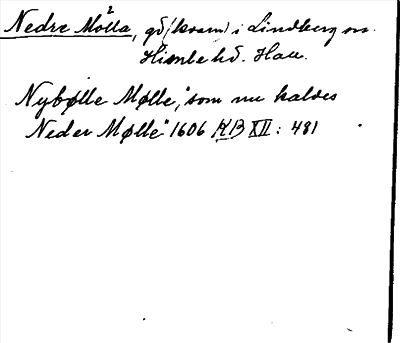 Nedre Mölla², gd (kvarn) i Lindberg sn.
Himle hd. Hall.
Nybølle Mølle, "som nu kaldes
Neder Mølle" 1606 KB XII: 481